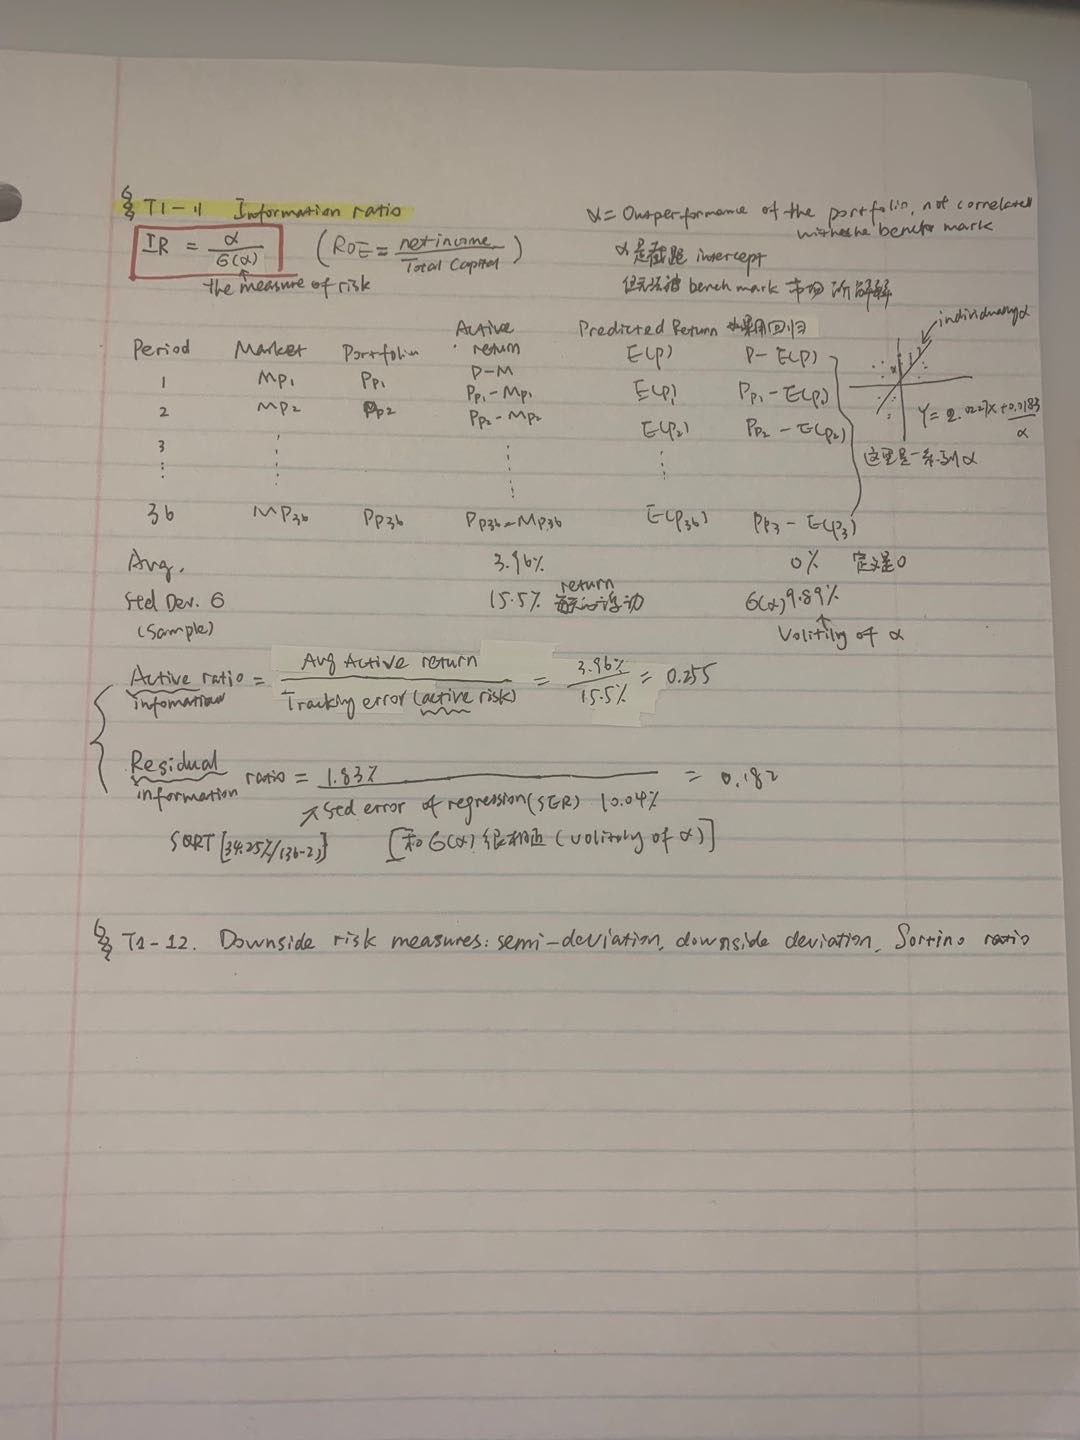 § T1-11 Information ratio
IR = α / б(α) (ROE = net income / Total Capital)
the measure of risk
α = Outperformance of the portfolio, not correlated
with the bench mark
α是截距 intercept
但无法被 bench mark 市场所解释
Period Market Portfolio Active return P-M Predicted Return 如果用回归 E(P) P-E(P)
individually α
1 MP1 PP1 PP1-MP1 E(P1) PP1-E(P1)
2 MP2 PP2 PP2-MP2 E(P2) PP2-E(P2)
Y = 2.0227x+0.0183
α
这里是一系列α
3
36 MP36 PP36 PP36-MP36 E(P36) PP3-E(P3)
Avg. 3.96% 0% 定义是0
Std Dev. б 15.5% return б(α) 9.89%
(Sample) Volitility of α
Active information ratio = Avg Active return / Tracking error (active risk) = 3.96% / 15.5% = 0.255
Residual information ratio = 1.83% / Std error of regression (SER) 10.04% = 0.182
SQRT[34.25%/(36-2)] [和б(α)很相近 (volitility of α)]
§ T1-12. Downside risk measures: semi-deviation, downside deviation, Sortino ratio